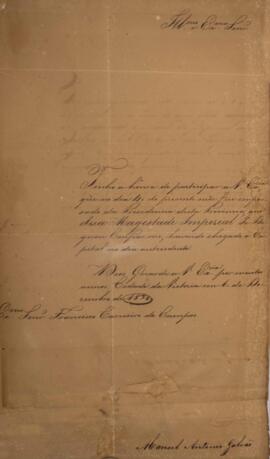 Illmo. e Exmo. Senr.
Tenho a honra de participar a V. Exa.
que no dia 4 do presente mez fui empos-
sado da Presidencia desta Provincia, que
Sua Magestade Imperial Se Di-
gnou Confiar-me, havendo chegado a
Capital no dia antecedente.
Deus Guarde a V. Exa. por muitos
annos. Cidade da Victoria em 6 de
de 1830
Senr. Francisco Carneiro de Campos
Manoel Antonio Galvão